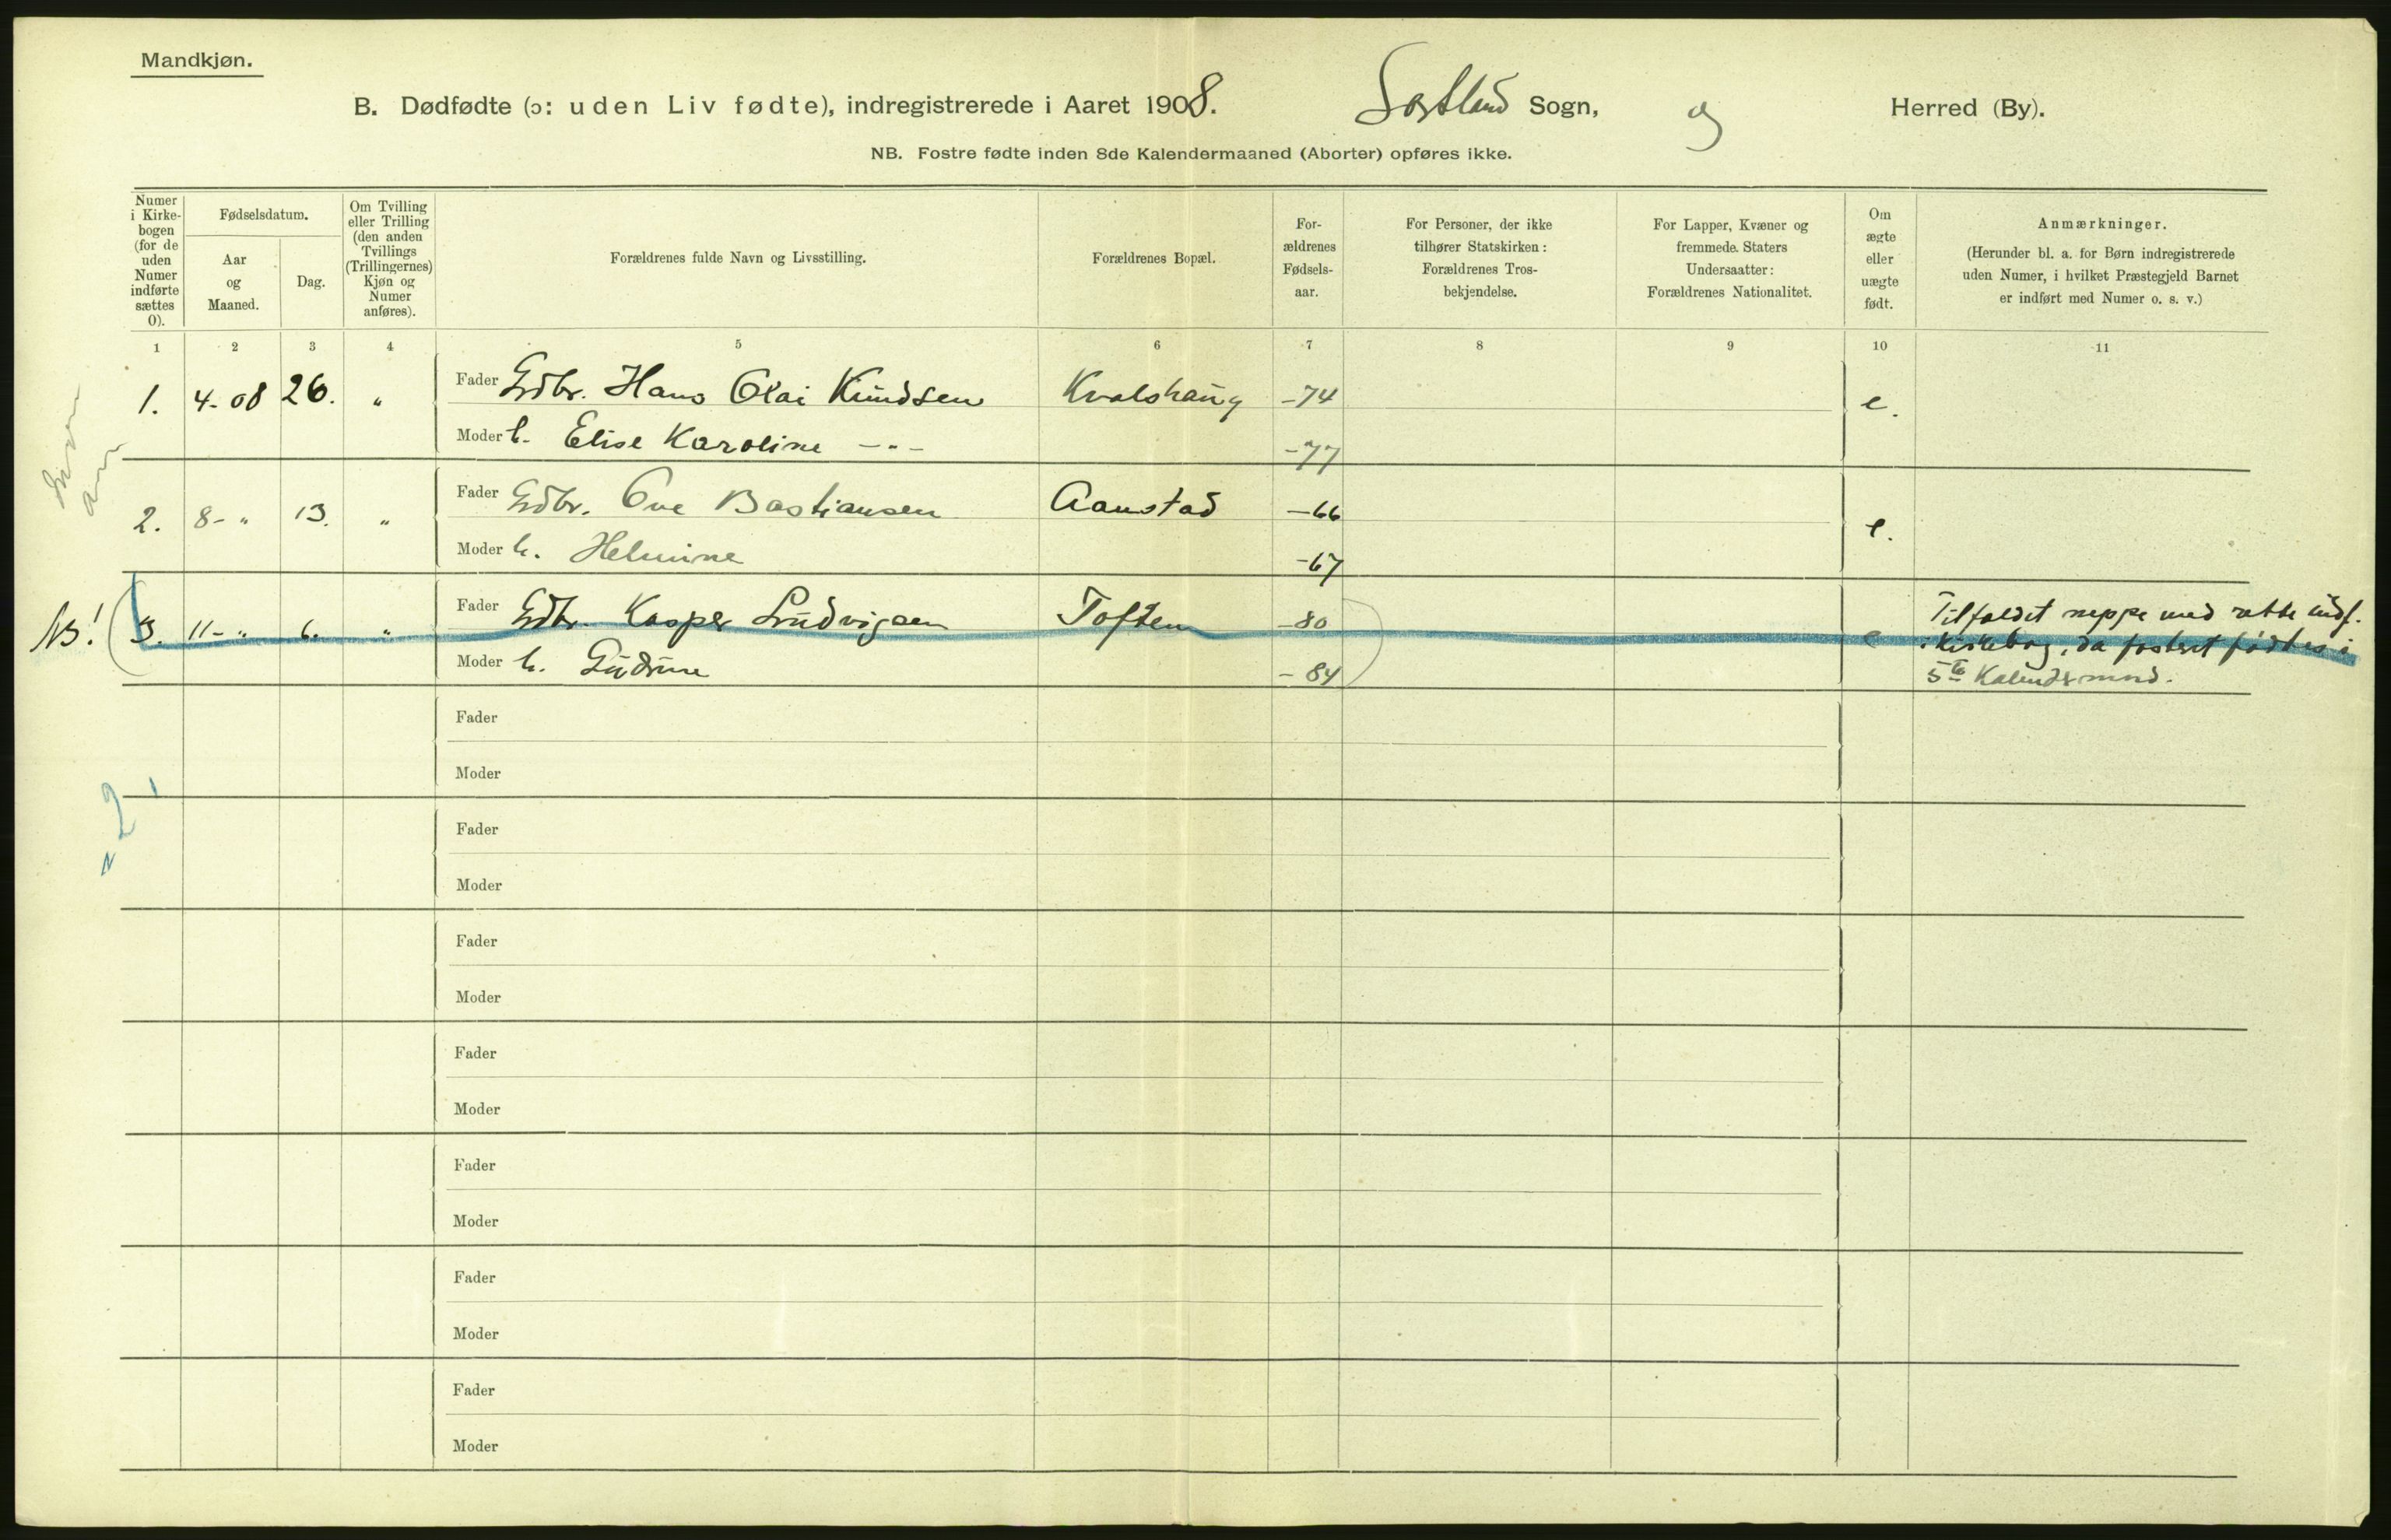 Mandkjøn.
B. Dødfødte (ɔ: uden Liv fødte), indregistrerede i Aaret 1908. Sortland Sogn, og Herred (By).
NB. Fostre fødte inden 8de Kalendermaaned (Aborter) opføres ikke.
Numer
i Kirke-
bogen
(for de
uden
Numer
indførte
sættes
0).
Fødselsdatum.
Aar
og
Maaned.
Dag.
Om Tvilling
eller Trilling
(den anden
Tvillings
(Trillingernes)
Kjøn og
Numer
anføres).
Forældrenes fulde Navn og Livsstilling.
Forældrenes Bopæl.
For-
ældrenes
Fødsels-
aar.
For Personer, der ikke
tilhører Statskirken:
Forældrenes Tros-
bekjendelse.
For Lapper, Kvæner og
fremmede Staters
Undersaatter:
Forældrenes Nationalitet.
Om
ægte
eller
uægte
født.
Anmærkninger.
(Herunder bl. a. for Børn indregistrerede
uden Numer, i hvilket Præstegjeld Barnet
er indført med Numer o. s. v.)
1 2 3 4 5 6 7 8 9 10 11
1. 4-08 26. " Fader Gdbr. Hans Olai Knudsen Kvalshaug -74 e.
Moder h. Elise Karoline -"- -77
2. 8- " 13. " Fader Gdbr. Ove Bastiansen Aanstad -66 e.
Moder h. Helmine -67
NB! (3. 11- " 6. " Fader Gdbr. Kasper Ludvigsen Toften -80 e Tilfældet neppe med rette indf.
i Kirkebog, da fosteret fødtes i
Moder h. Gudrine -84) 5te Kalendermnd.
Fader
Moder
= 2
Fader
Moder
Fader
Moder
Fader
Moder
Fader
Moder
Fader
Moder
Fader
Moder